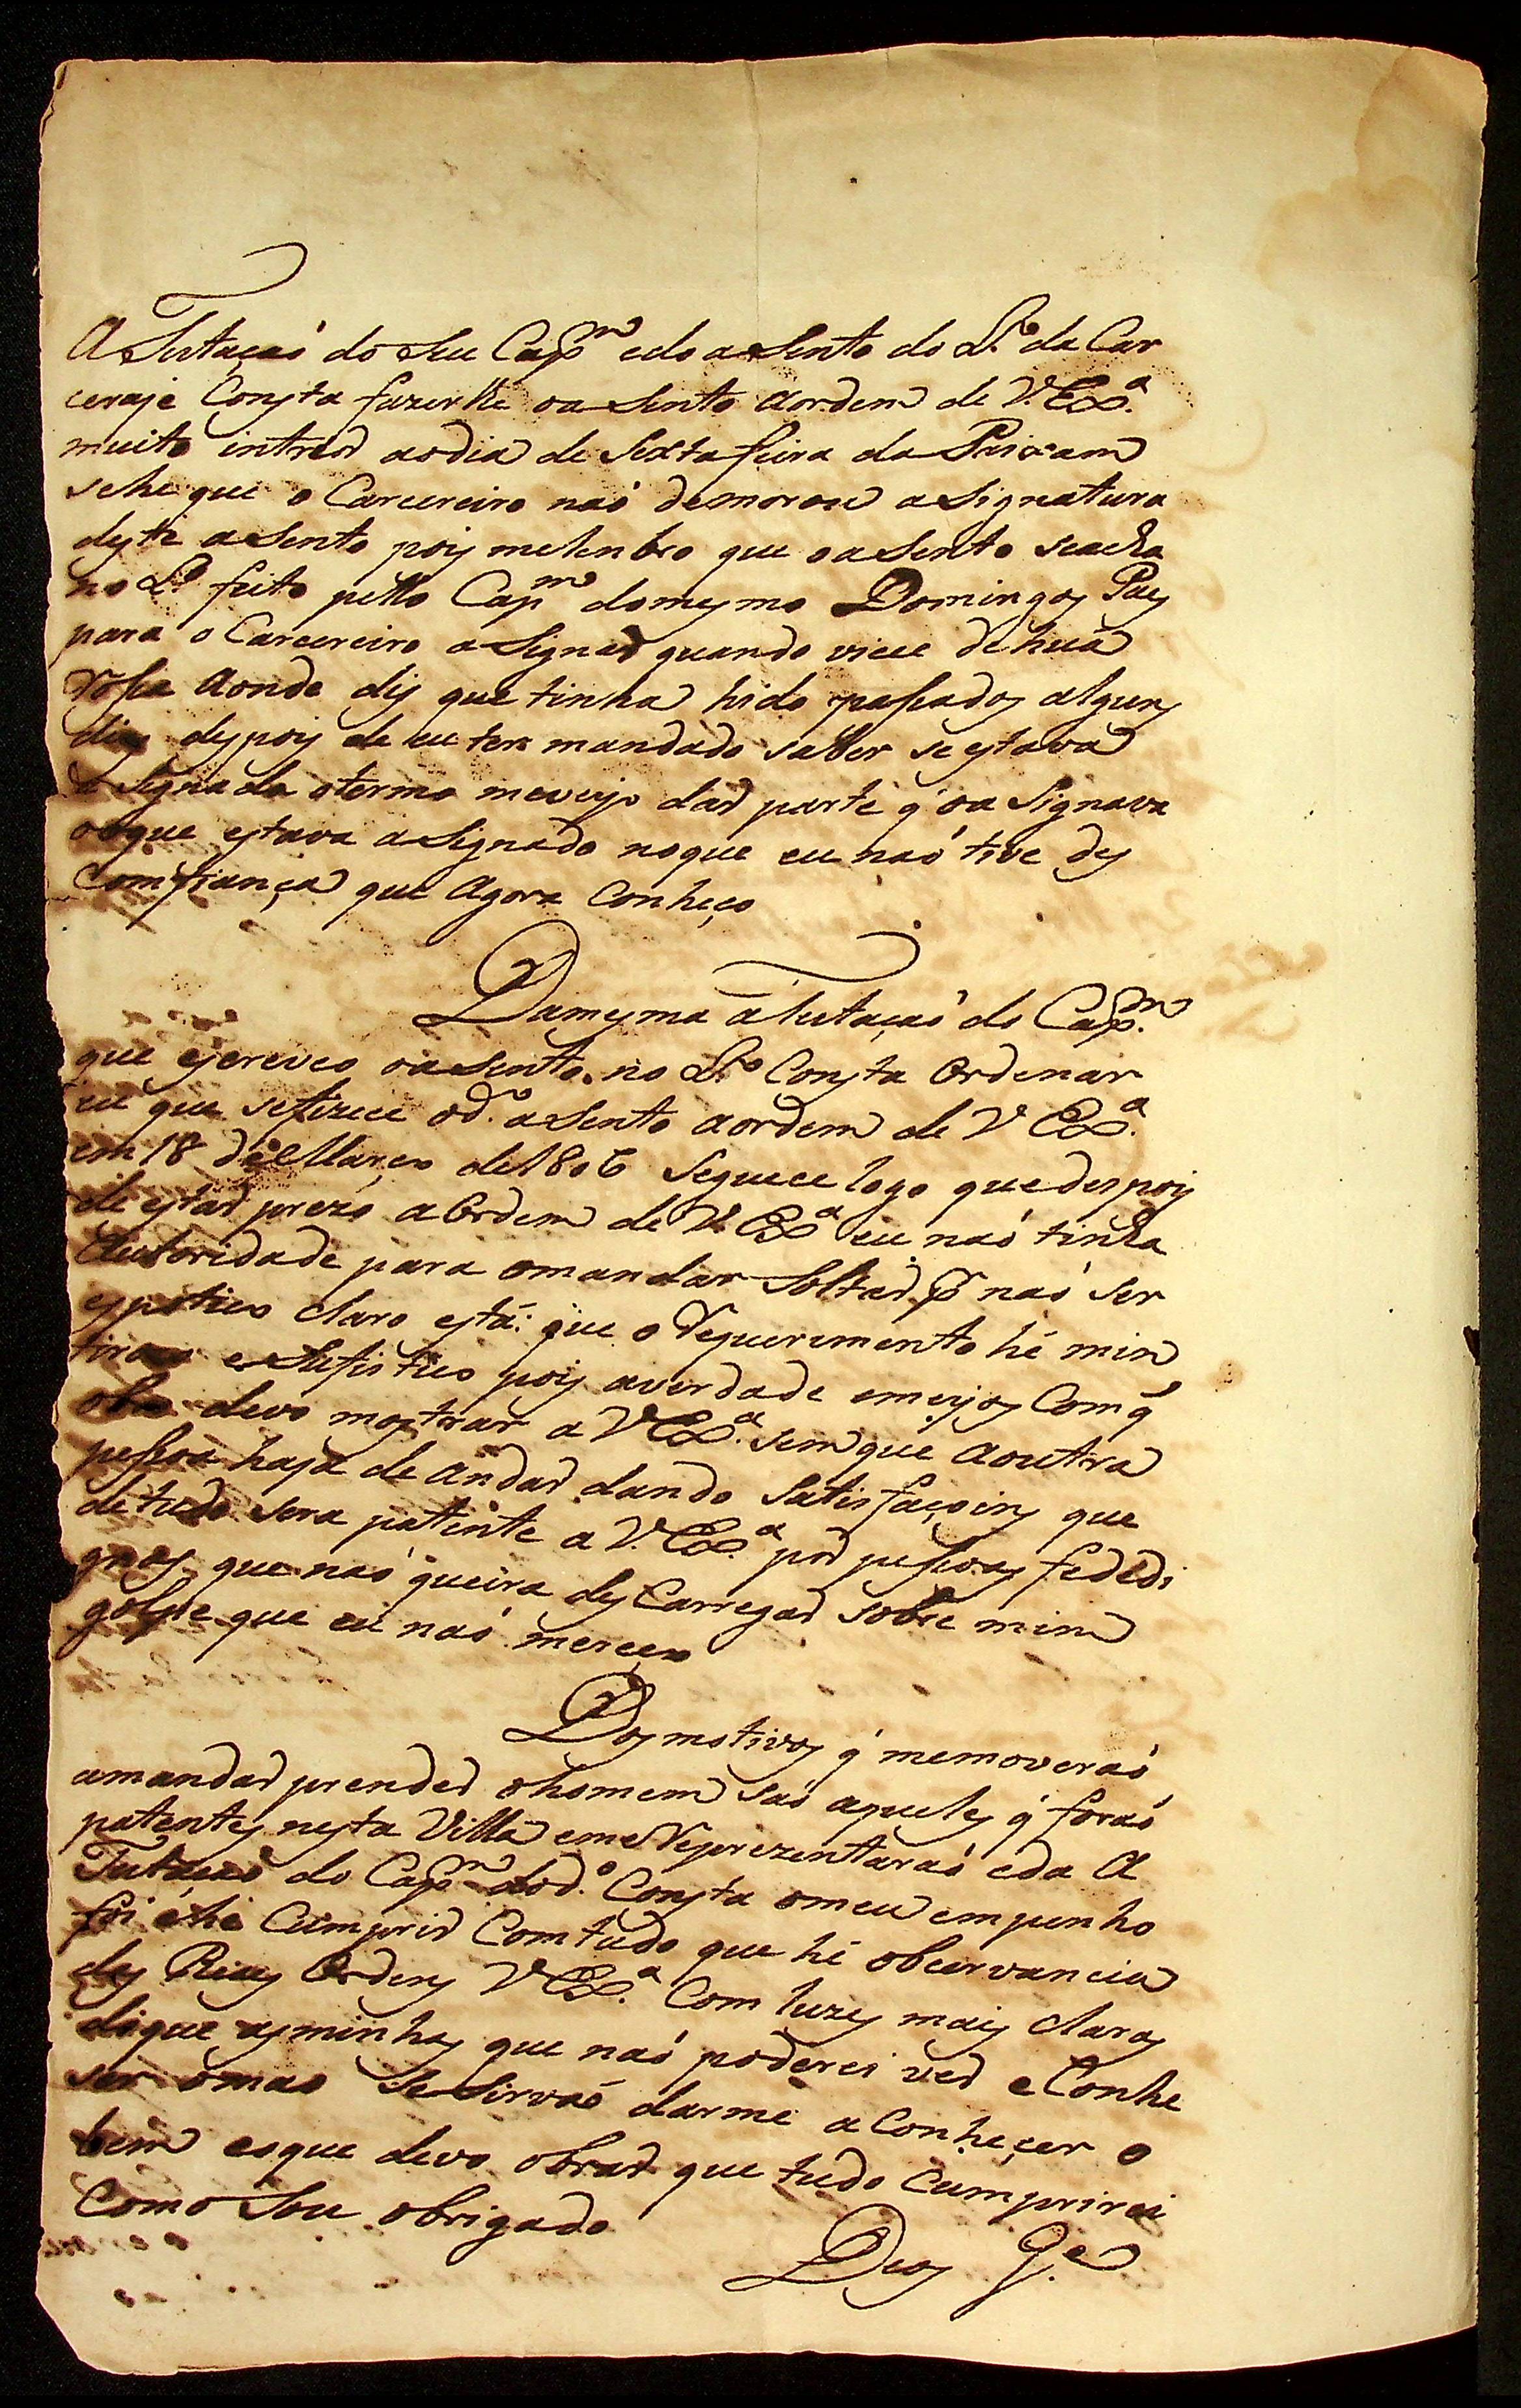 Atestaçaó do seu Cap.m edo asento do L.o da Car
ceraje Consta fazerlle oasento aordem de V. Ex.a
muito intrior aodia de Sexta feira da Paixam
sehe que o Carcereiro naó demorou asignatura
deste asento pois melenbro que oasento seacha
no L.o feito pello Cap.m domesmo Domingos Paes
para o Carcereiro asignar quando viece dehuá
rosa Aonde dis que tinha hido pasados alguns
dias despois de eu ter mandado saber se estava
asignado otermo meveijo dar parte q' oasignava
ooque estava asignado noque eu naó tive des
Comfiança que Agora Conheço
Damesma atestaçaó do Cap.m
que escreveo oasento no L.o Consta Ordenar
eu que sefizece od.o asento aordem de V Ex.a
em 18 de Março de 1806 Seguece logo que despois
de estar prezo a Ordem de V. Ex.a eu naó tinha
Autoridade para omandar Soltar p.r naó ser
espotico claro está: que o Requerimento hé min
tirozo e Sufistico pois averdade emeijos Com q'
obro devo mostrar a V Ex.a sem que Aoutra
pesoa haja de Andar dando Satisfaçoins que
detudo sera patente a V. Ex.a por pesoas fededi
gnas que naó queira des Carregar sobre mim
golpe que eu naó mereço
Dos motivos q' memoveraó
amandar prender ohomem saó aqueles q' foraó
patentes nesta Villa eme Reprezentaraó eda A
Testaçaó do Cap.m dod.o Consta omeu empenho
foi ehé Cumprir Comtudo que hé obcervancia
das Reais Ordens V Ex.a Com luzes mais claras
doque asminhas que naó poderei ver e Conhe
ser omao Se Sirvaó darme a Conhecer o
bem eoque devo obrar que tudo Cumprirei
Como Sou obrigado
Deos G.e